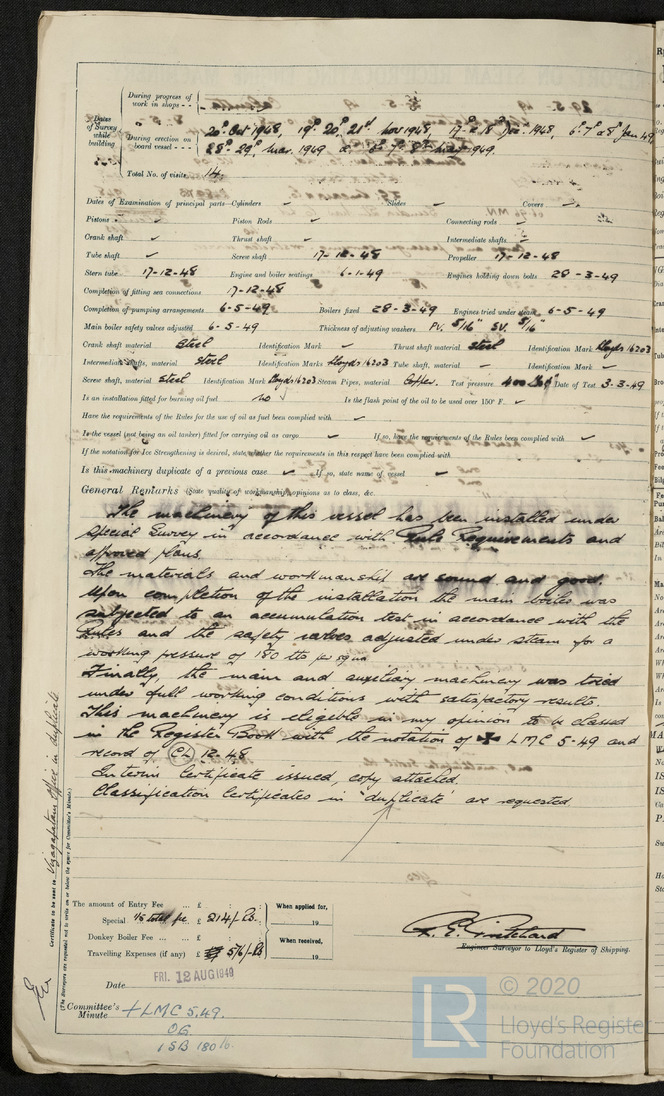 During progress of work in shops - -
Dates of Survey while building
During erection on board vessel - - -
20th Oct 1948, 19th 20th 21st Nov 1948, 17th & 18th Dec. 1948, 6th 7th & 8th Jan 49
28th 29th Mar. 1949 & 6th 7th 8th 1949.
Total No. of visits 14.
Dates of Examination of principal parts—Cylinders ✓ Slides ✓ Covers ✓
Pistons ✓ Piston Rods ✓ Connecting rods ✓
Crank shaft ✓ Thrust shaft ✓ Intermediate shafts ✓
Tube shaft ✓ Screw shaft 17-12-48 Propeller 17-12-48
Stern tube 17-12-48 Engine and boiler seatings 6-1-49 Engines holding down bolts 28-3-49
Completion of fitting sea connections 17-12-48
Completion of pumping arrangements 6-5-49 Boilers fixed 28-3-49 Engines tried under steam 6-5-49
Main boiler safety valves adjusted 6-5-49 Thickness of adjusting washers PV. 5/16" SV. 5/16"
Crank shaft material Steel Identification Mark ✓ Thrust shaft material steel Identification Mark Lloyds 16203
Intermediate shafts, material steel Identification Marks Lloyds 16203 Tube shaft, material ✓ Identification Mark ✓
Screw shaft, material steel Identification Mark Lloyds 16203 Steam Pipes, material Copper. Test pressure 400 Date of Test 3-3-49
Is an installation fitted for burning oil fuel no Is the flash point of the oil to be used over 150° F. ✓
Have the requirements of the Rules for the use of oil as fuel been complied with ✓
Is the vessel (not being an oil tanker) fitted for carrying oil as cargo ✓ If so, have the requirements of the Rules been complied with ✓
If the notation for Ice Strengthening is desired, state whether the requirements in this respect have been complied with
Is this machinery duplicate of a previous case ✓ If so, state name of vessel ✓
General Remarks (State quality of workmanship, opinions as to class, &c.
The machinery of this vessel has been installed under
special Survey in accordance with Rule Requirements and
approved plans.
The materials and workmanship are sound and good.
Upon completion of the installation the main boiler was
subjected to an accumulation test in accordance with the
Rules and the safety valves adjusted under steam for a
working pressure of 180 lbs per sq in
Finally, the main and auxiliary machinery was tried
under full working conditions with satisfactory results.
This machinery is eligible in my opinion to be classed
in the Register Book with the notation of ✠ LMC 5-49 and
record of CL 12-48
Interim Certificate issued, copy attached.
Classification Certificates in 'duplicate' are requested
Certificate to be sent to Vizagapatam office in duplicate
(The Surveyors are requested not to write on or below the space for Committee's Minute.)
The amount of Entry Fee ... £ : : When applied for,
Special 1/5 total fee £ 214/- Rs. 19
Donkey Boiler Fee ... £ : : When received,
Travelling Expenses (if any) £ 5/6/- Rs 19
R. E. Pritchard
Engineer Surveyor to Lloyd's Register of Shipping.
Date FRI. 12 AUG 1949
Committee's Minute + LMC 5.49.
OG
1 SB 180 lb.
LR
© 2020
Lloyd's Register
Foundation